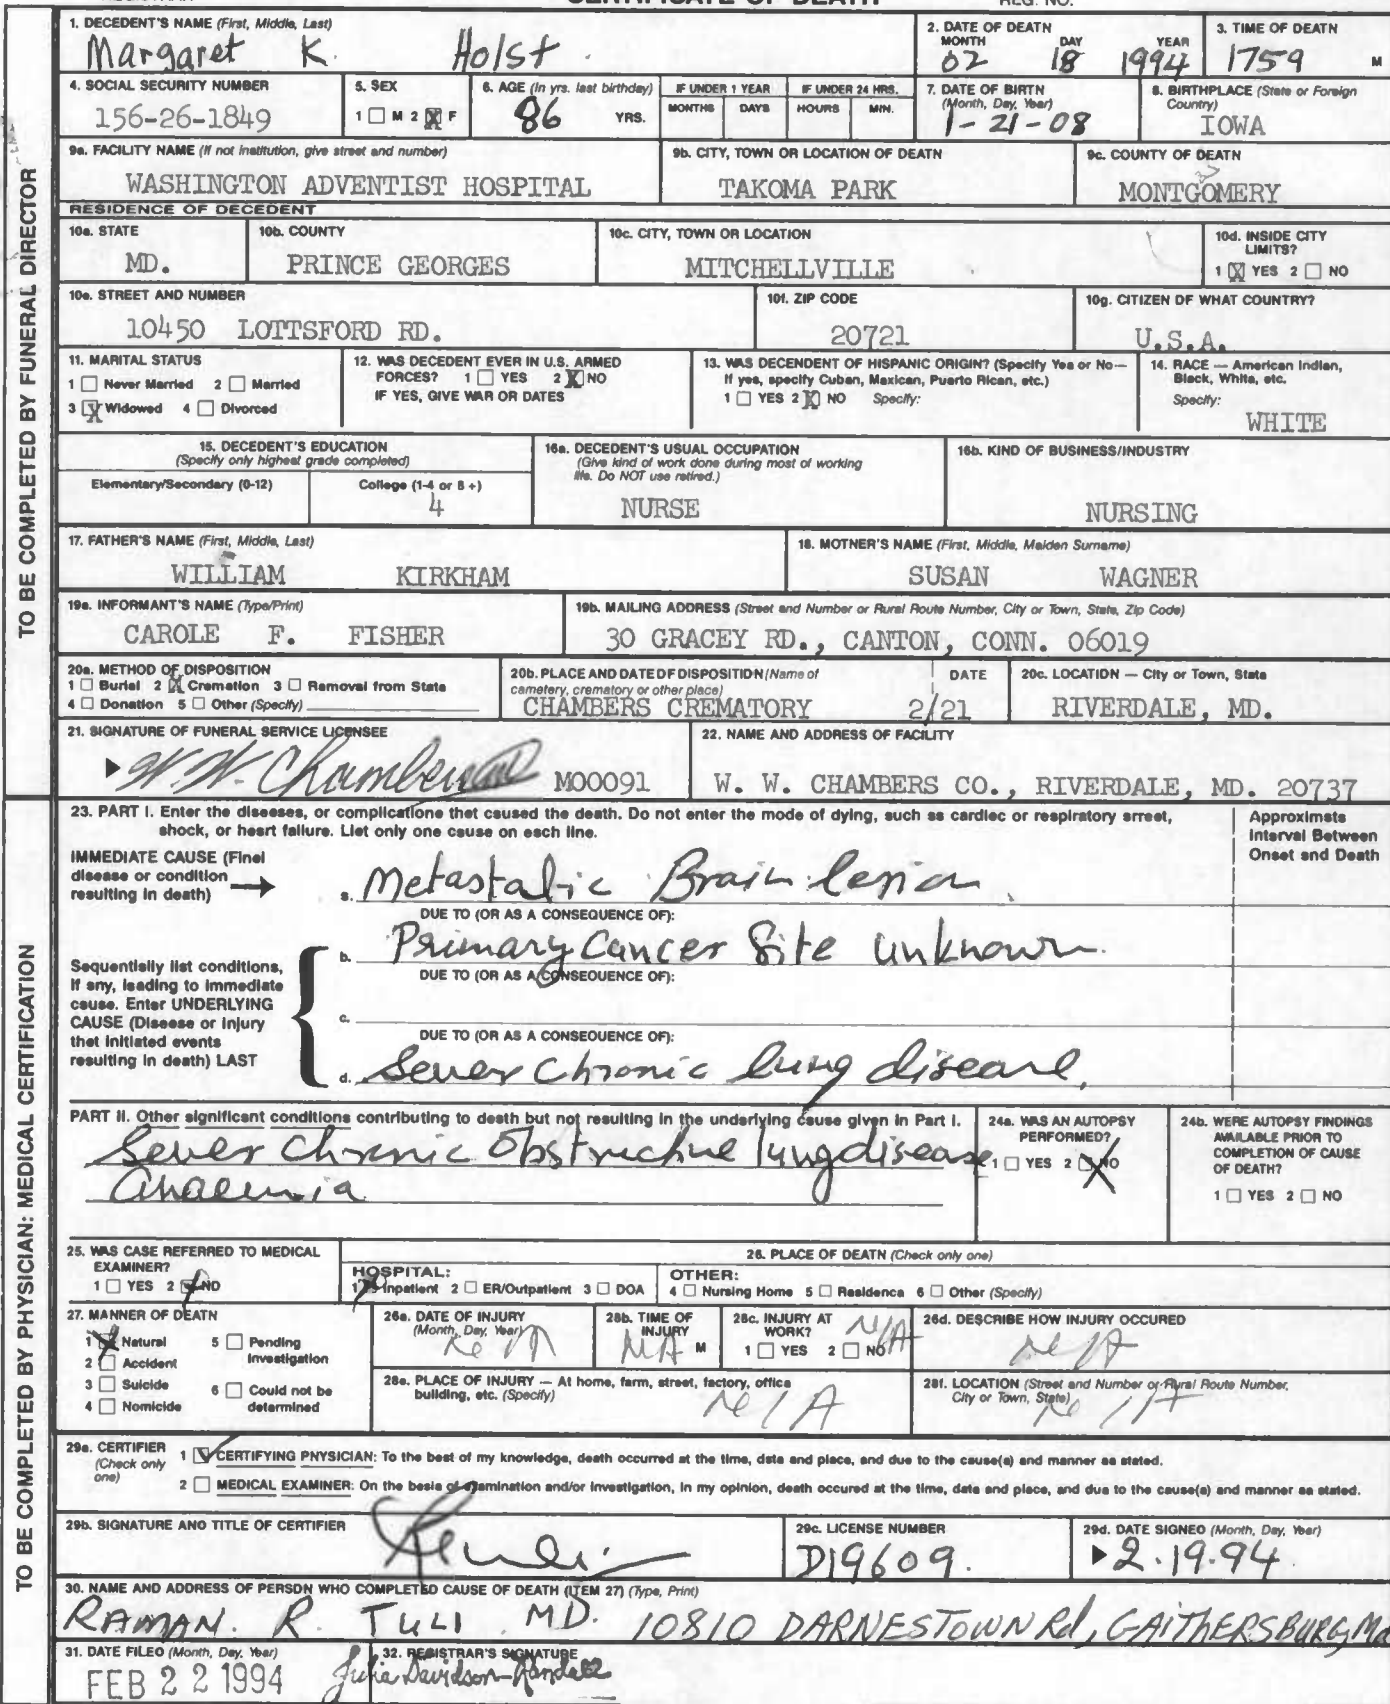 CERTIFICATE OF DEATH REG. NO.
TO BE COMPLETED BY FUNERAL DIRECTOR
1. DECEDENT'S NAME (First, Middle, Last)
Margaret K. Holst
2. DATE OF DEATH
MONTH DAY YEAR
02 18 1994
3. TIME OF DEATH
1759 M
4. SOCIAL SECURITY NUMBER
156-26-1849
5. SEX
1 ☐ M 2 ☒ F
6. AGE (In yrs. last birthday)
86 YRS.
IF UNDER 1 YEAR
MONTHS DAYS
IF UNDER 24 HRS.
HOURS MIN.
7. DATE OF BIRTH
(Month, Day, Year)
1-21-08
8. BIRTHPLACE (State or Foreign
Country)
IOWA
9a. FACILITY NAME (If not institution, give street and number)
WASHINGTON ADVENTIST HOSPITAL
9b. CITY, TOWN OR LOCATION OF DEATH
TAKOMA PARK
9c. COUNTY OF DEATH
MONTGOMERY
RESIDENCE OF DECEDENT
10a. STATE
MD.
10b. COUNTY
PRINCE GEORGES
10c. CITY, TOWN OR LOCATION
MITCHELLVILLE
10d. INSIDE CITY
LIMITS?
1 ☒ YES 2 ☐ NO
10e. STREET AND NUMBER
10450 LOTTSFORD RD.
10f. ZIP CODE
20721
10g. CITIZEN OF WHAT COUNTRY?
U.S.A.
11. MARITAL STATUS
1 ☐ Never Married 2 ☐ Married
3 ☒ Widowed 4 ☐ Divorced
12. WAS DECEDENT EVER IN U.S. ARMED
FORCES? 1 ☐ YES 2 ☒ NO
IF YES, GIVE WAR OR DATES
13. WAS DECENDENT OF HISPANIC ORIGIN? (Specify Yes or No—
If yes, specify Cuban, Mexican, Puerto Rican, etc.)
1 ☐ YES 2 ☒ NO Specify:
14. RACE — American Indian,
Black, White, etc.
Specify:
WHITE
15. DECEDENT'S EDUCATION
(Specify only highest grade completed)
Elementary/Secondary (0-12) College (1-4 or 5 +)
4
16a. DECEDENT'S USUAL OCCUPATION
(Give kind of work done during most of working
life. Do NOT use retired.)
NURSE
16b. KIND OF BUSINESS/INDUSTRY
NURSING
17. FATHER'S NAME (First, Middle, Last)
WILLIAM KIRKHAM
18. MOTHER'S NAME (First, Middle, Maiden Surname)
SUSAN WAGNER
19a. INFORMANT'S NAME (Type/Print)
CAROLE F. FISHER
19b. MAILING ADDRESS (Street and Number or Rural Route Number, City or Town, State, Zip Code)
30 GRACEY RD., CANTON, CONN. 06019
20a. METHOD OF DISPOSITION
1 ☐ Burial 2 ☒ Cremation 3 ☐ Removal from State
4 ☐ Donation 5 ☐ Other (Specify)
20b. PLACE AND DATE OF DISPOSITION (Name of
cemetery, crematory or other place)
DATE
CHAMBERS CREMATORY 2/21
20c. LOCATION — City or Town, State
RIVERDALE, MD.
21. SIGNATURE OF FUNERAL SERVICE LICENSEE
W. W. Chambers M00091
22. NAME AND ADDRESS OF FACILITY
W. W. CHAMBERS CO., RIVERDALE, MD. 20737
TO BE COMPLETED BY PHYSICIAN: MEDICAL CERTIFICATION
23. PART I. Enter the diseases, or complications that caused the death. Do not enter the mode of dying, such as cardiac or respiratory arrest,
shock, or heart failure. List only one cause on each line.
Approximate
Interval Between
Onset and Death
IMMEDIATE CAUSE (Final
disease or condition
resulting in death) →
a. Metastatic Brain lesion
DUE TO (OR AS A CONSEQUENCE OF):
b. Primary Cancer Site unknown.
DUE TO (OR AS A CONSEQUENCE OF):
Sequentially list conditions,
If any, leading to immediate
cause. Enter UNDERLYING
CAUSE (Disease or injury
that initiated events
resulting in death) LAST
c.
DUE TO (OR AS A CONSEQUENCE OF):
d. Sever Chronic lung disease.
PART II. Other significant conditions contributing to death but not resulting in the underlying cause given in Part I.
Sever Chronic Obstructive lung disease
Anaemia
24a. WAS AN AUTOPSY
PERFORMED?
1 ☐ YES 2 ☒ NO
24b. WERE AUTOPSY FINDINGS
AVAILABLE PRIOR TO
COMPLETION OF CAUSE
OF DEATH?
1 ☐ YES 2 ☐ NO
25. WAS CASE REFERRED TO MEDICAL
EXAMINER?
1 ☐ YES 2 ☒ NO
26. PLACE OF DEATH (Check only one)
HOSPITAL:
1 ☒ Inpatient 2 ☐ ER/Outpatient 3 ☐ DOA
OTHER:
4 ☐ Nursing Home 5 ☐ Residence 6 ☐ Other (Specify)
27. MANNER OF DEATH
1 ☒ Natural 5 ☐ Pending
Investigation
2 ☐ Accident
3 ☐ Suicide 6 ☐ Could not be
determined
4 ☐ Homicide
28a. DATE OF INJURY
(Month, Day, Year)
N/A
28b. TIME OF
INJURY
NA M
28c. INJURY AT
WORK?
N/A
1 ☐ YES 2 ☐ NO
28d. DESCRIBE HOW INJURY OCCURED
N/A
28e. PLACE OF INJURY — At home, farm, street, factory, office
building, etc. (Specify)
N/A
28f. LOCATION (Street and Number or Rural Route Number,
City or Town, State)
N/A
29a. CERTIFIER
(Check only
one)
1 ☑ CERTIFYING PHYSICIAN: To the best of my knowledge, death occurred at the time, date and place, and due to the cause(s) and manner as stated.
2 ☐ MEDICAL EXAMINER: On the basis of examination and/or investigation, in my opinion, death occured at the time, date and place, and due to the cause(s) and manner as stated.
29b. SIGNATURE AND TITLE OF CERTIFIER
29c. LICENSE NUMBER
D19609.
29d. DATE SIGNED (Month, Day, Year)
2.19.94
30. NAME AND ADDRESS OF PERSON WHO COMPLETED CAUSE OF DEATH (ITEM 27) (Type, Print)
RAMAN. R. TULI MD. 10810 DARNESTOWN Rd, GAITHERSBURG, Md
31. DATE FILED (Month, Day, Year)
FEB 22 1994
32. REGISTRAR'S SIGNATURE
Julia Davidson-Randall